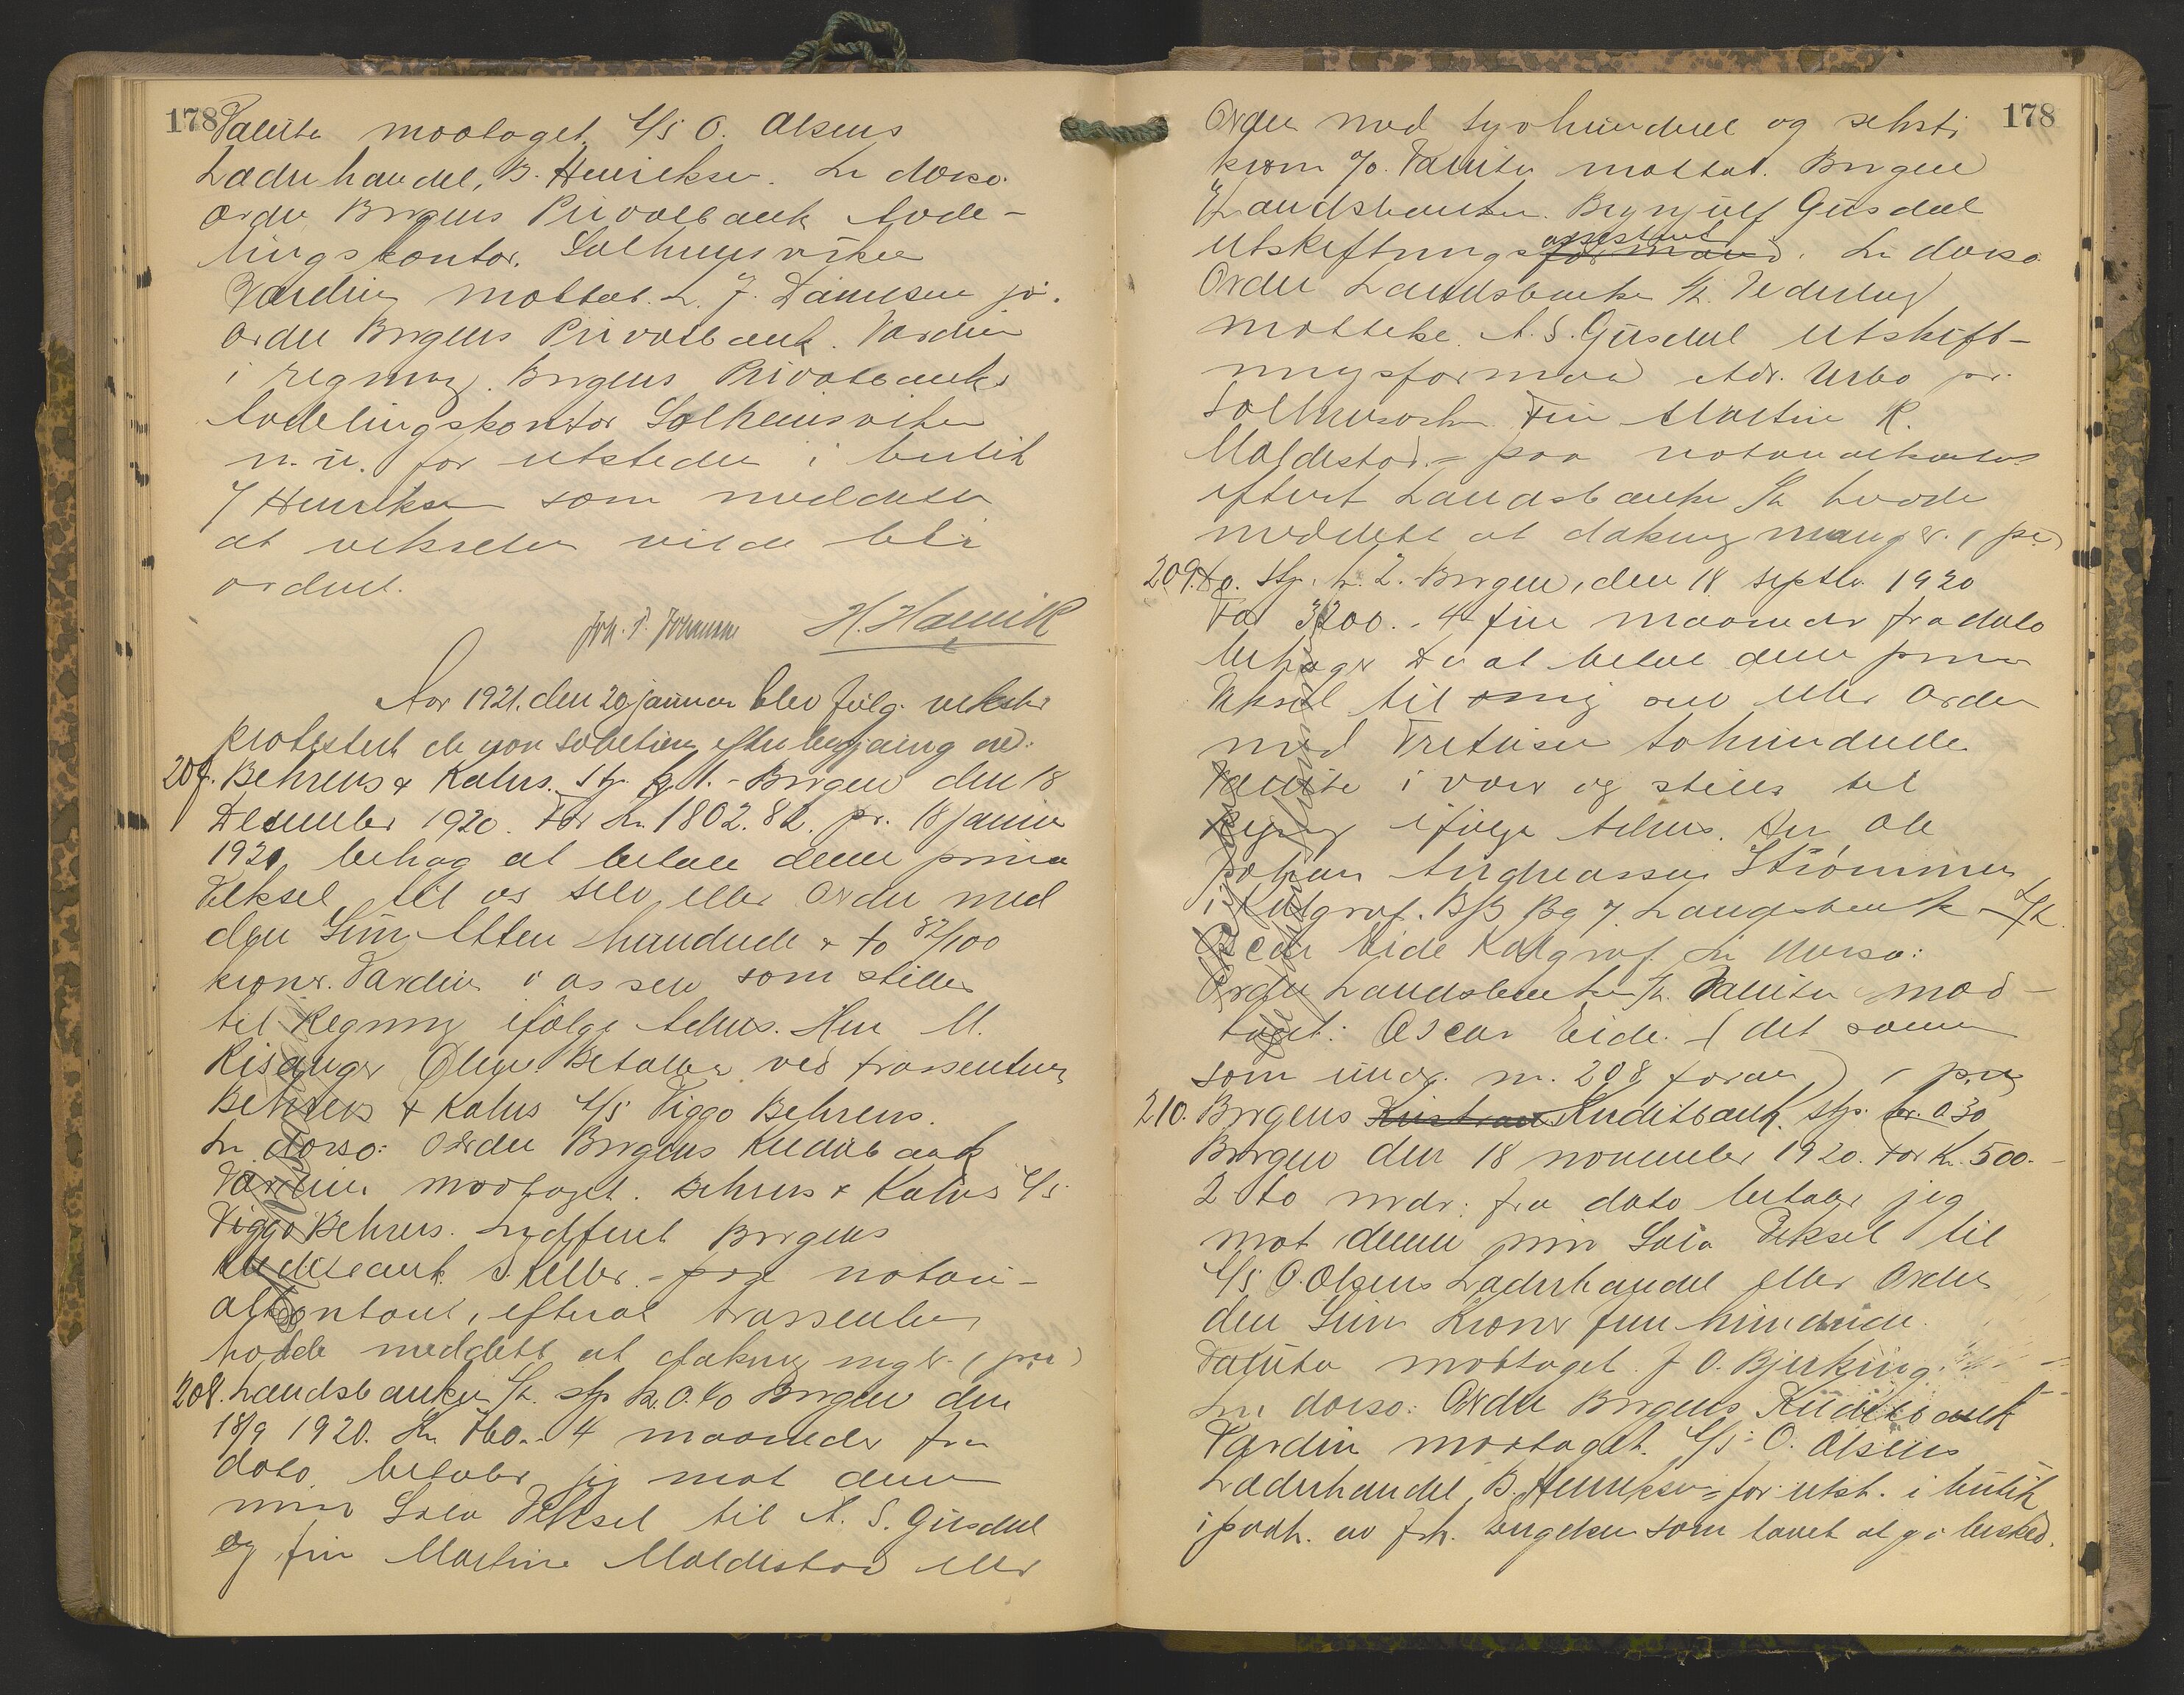 178
Valuta modtaget. A/S O. Olsens
Læderhandel, B. Henriksen. In dorso.
ordre Bergens Privatbank Avde-
lingskontor. Solheimsviken
Værdien mottat. L. J. Danielsen jr.
Ordre Bergens Privatbank. Værdien
i regning. Bergens Privatbanks
Avdelingskontor Solheimsviken
n. n. for utsteder i butik
v/ Henriksen som meddelte
at vekselen vilde bli
ordnet.
Joh. P. Johannesen H. Hamik
Aar 1921. den 20 januar blev følg. veksler
protestert de non solutione efter begjæring av:
207. Behrens & Kahrs. Stp. kr 1. - Bergen den 18
Desember 1920. For Kr. 1802.82. pr. 18 januar
1921 behag at betale denne prima
Veksel til os selv eller Ordre med
den Sum Atten hundrede & to 82/100
kroner. Værdien i os selv som stilles
til Regning ifølge Advis. Herr M.
Risanger Ølen. Betalbar ved trassenten
Behrens & Kahrs A/S Viggo Behrens.
In dorso: Ordre Bergens Kreditbank
Værdien modtaget. Behrens & Kahrs A/S
Viggo Behrens. Indfriet Bergens
Kreditbank S. Keller. - paa notari-
alkontoret, efterat trassenten
hadde meddelt at dækning mgl. (pr)
208. Landsbanken A/S. stp kr. 0.60 Bergen den
18/9 1920. Kr. 760.- 4 maaneder fra
dato betaler jeg mot denne
min Sola Veksel til A. S. Gusdal
og fru Martine Moldestad eller
178
Ordre med syvhundrede og seksti
kroner %. Valuta mottat. Bergen
Landsbanken. Brynjulf Gusdal
utskiftningsformand assistent. In dorso
Ordre Landsbanken A/S. Vederlag
mottatt. A. S. Gusdal utskift-
ningsformand Adr. Urbø pr.
Solheimsvik. Fru Martine K.
Moldestad. - paa notarialkontoret
efterat Landsbanken A/S hadde
meddelt at dækning mangler. (pr)
209. do. Stp. kr. 2. Bergen, den 18 septbr. 1920
For 3200.- 4 fire maaneder fra dato
behager De at betale denne prima
Veksel til mig selv eller Ordre
med Tretusen tohundrede
Valuta i varer og stilles til
Regning ifølge Advis. Herr Ole
Johan Andreassen Strømmen
i Kalgraf. B/B Bg v. Landsbank A/S.
Oscar Eide Kalgraf. In dorso:
Ordre Landsbanken A/S. Valuta mod-
taget: Oscar Eide. - (det samme
som under nr. 208 foran) (pr)
210. Bergens Kreditbank. stp. kr. 0.30
Bergen den 18 november 1920. For Kr. 500.-
2 to mdr. fra dato betaler jeg
mot denne min Sola Veksel til
A/S O. Olsens Læderhandel eller Ordre
den Sum Kroner fem hundrede.
Valuta mottaget. J O. Bjerküng.
In dorso: Ordre Bergens Kreditbank
Værdien modtaget. A/S O. Olsens
Læderhandel B. Henriksen - for utst. i butik
i paah. av frk. Engelsen som lovet at gi besked.